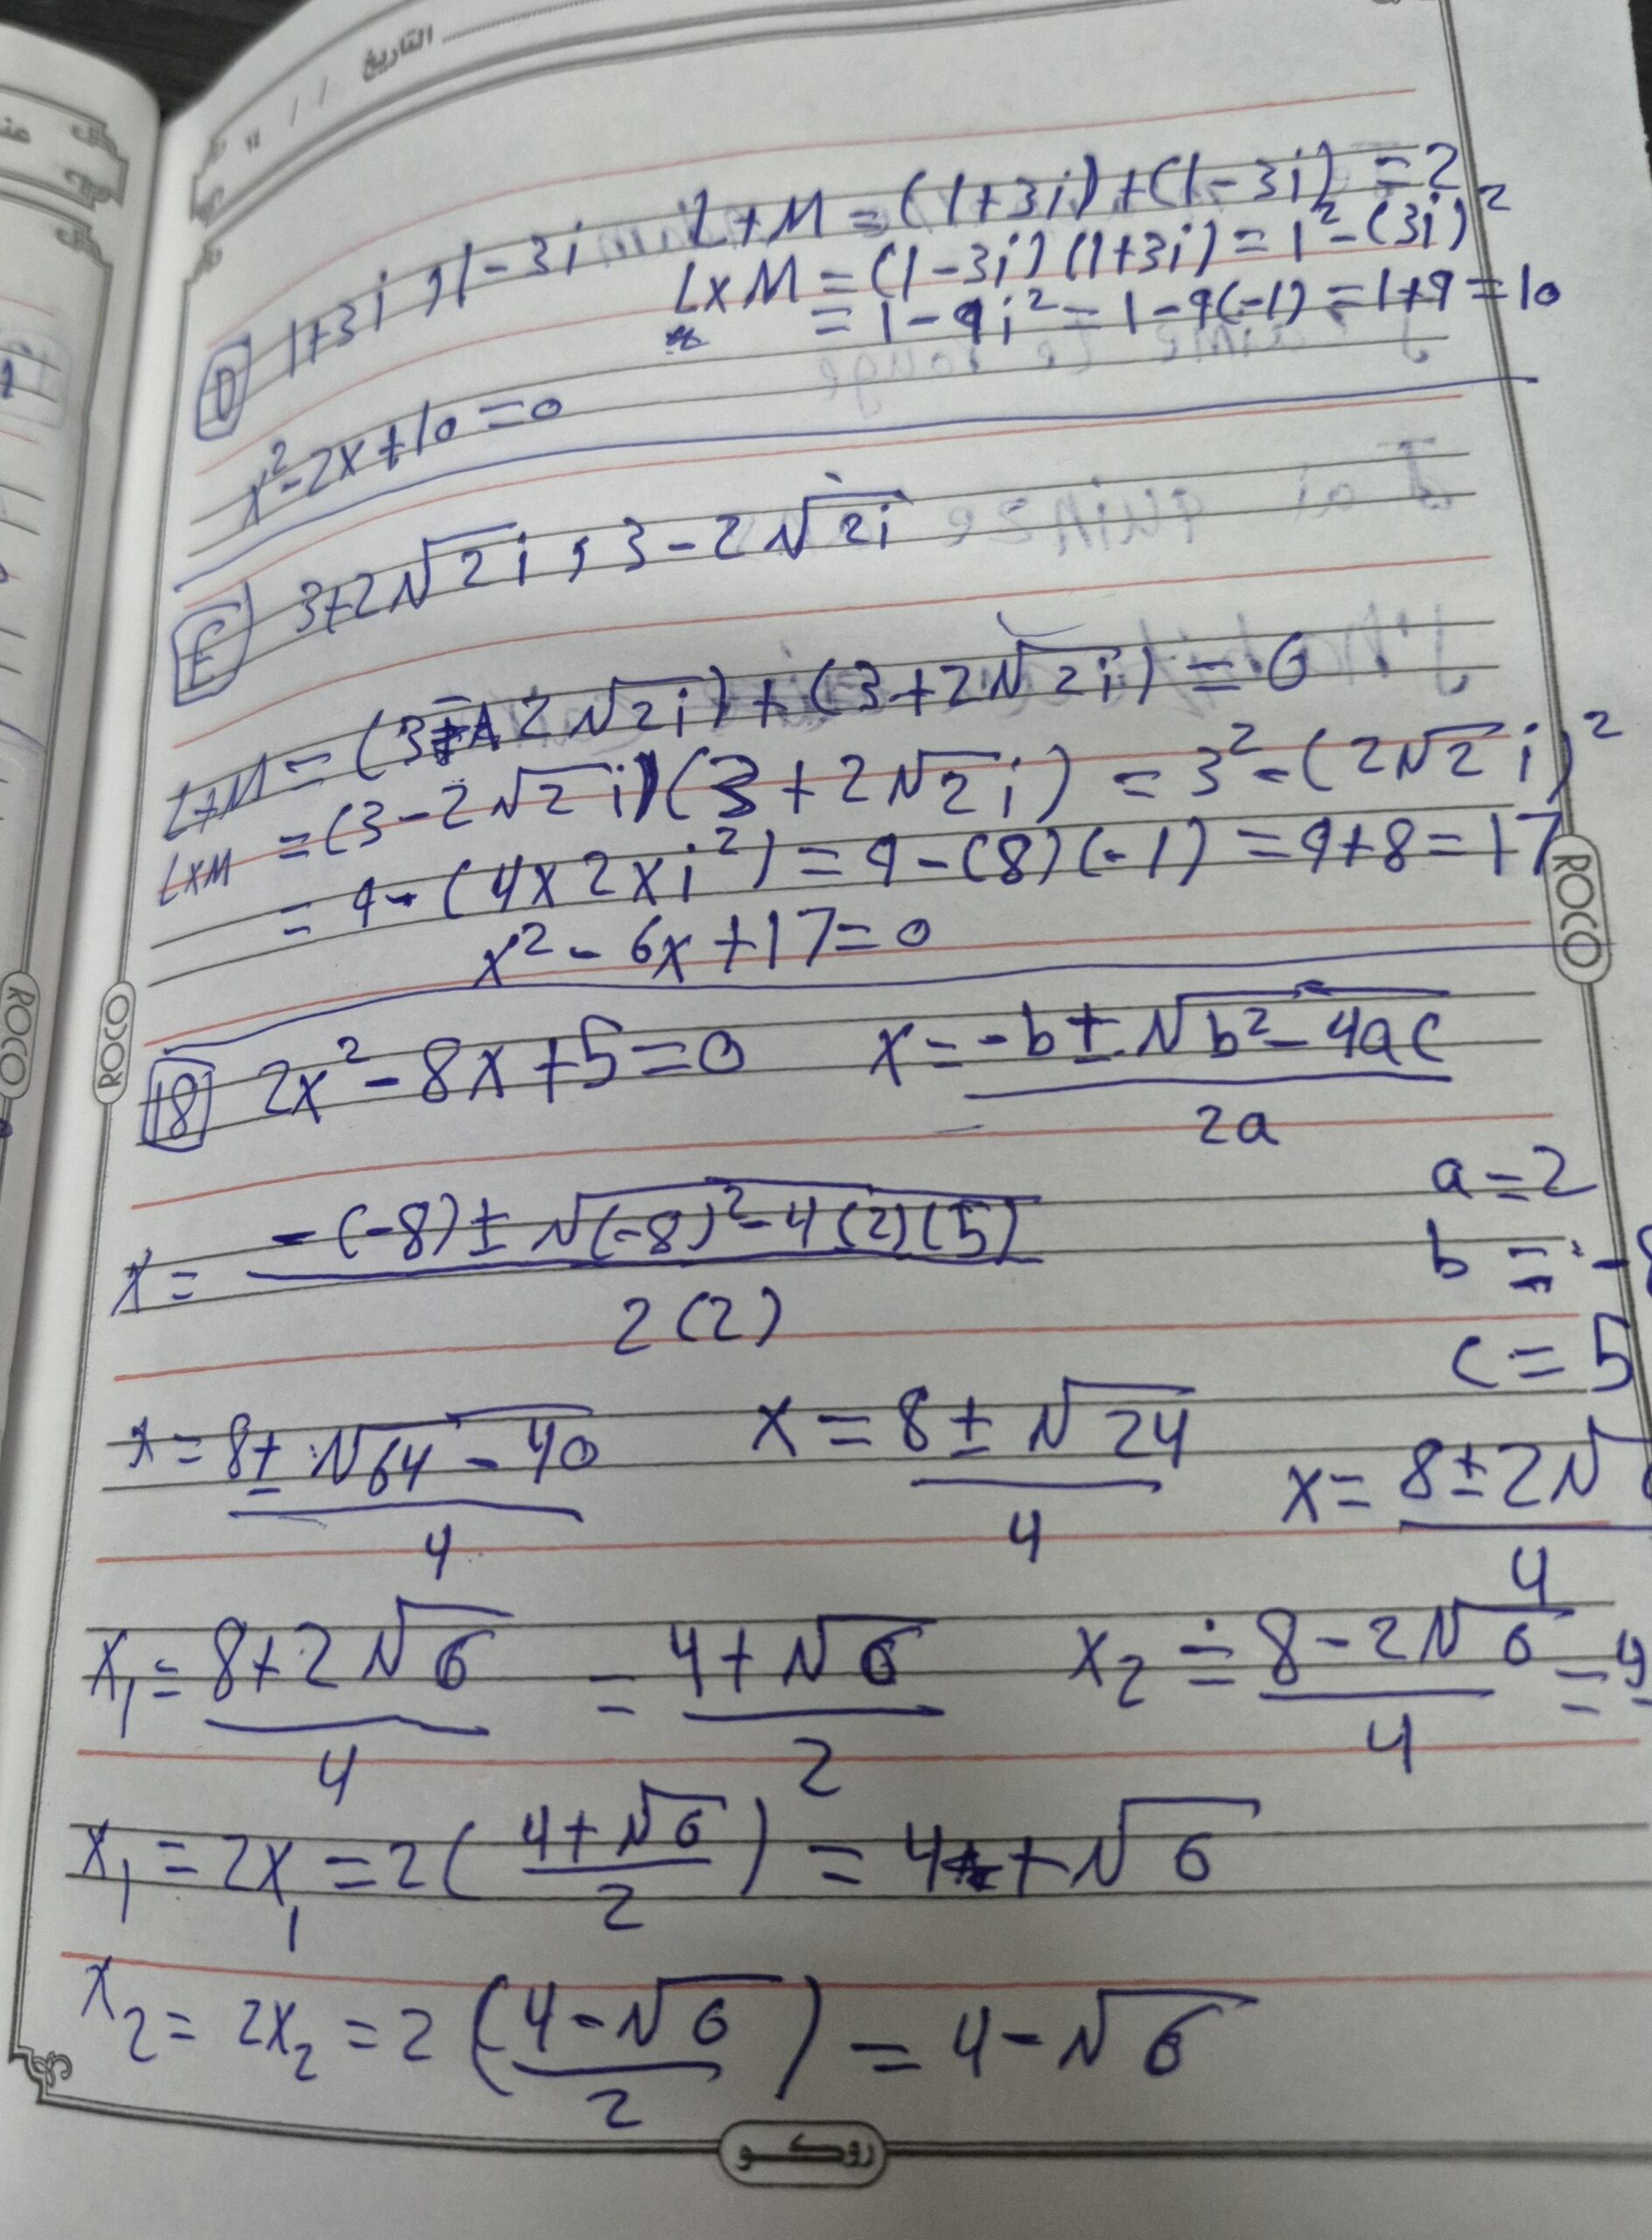 التاريخ / /
D 1+3i , 1-3i
L+M = (1+3i)+(1-3i) = 2
L×M = (1-3i)(1+3i) = 1² - (3i)²
= 1-9i² = 1-9(-1) = 1+9 = 10
x²-2x+10=0
E 3+2√2i , 3-2√2i
L+M = (3-2√2i)+(3+2√2i) = 6
L×M = (3-2√2i)(3+2√2i) = 3²-(2√2i)²
= 9-(4×2×i²) = 9-(8)(-1) = 9+8 = 17
x²-6x+17=0
18 2x²-8x+5=0 x = (-b±√(b²-4ac))/2a
a=2
x = (-(-8)±√((-8)²-4(2)(5)))/2(2)
b = -8
c = 5
x = (8±√(64-40))/4 x = (8±√24)/4 x = (8±2√6)/4
x₁ = (8+2√6)/4 = (4+√6)/2 x₂ = (8-2√6)/4 =
x₁ = 2x₁ = 2((4+√6)/2) = 4+√6
x₂ = 2x₂ = 2((4-√6)/2) = 4-√6
ROCO
ROCO
ROCO
روكو